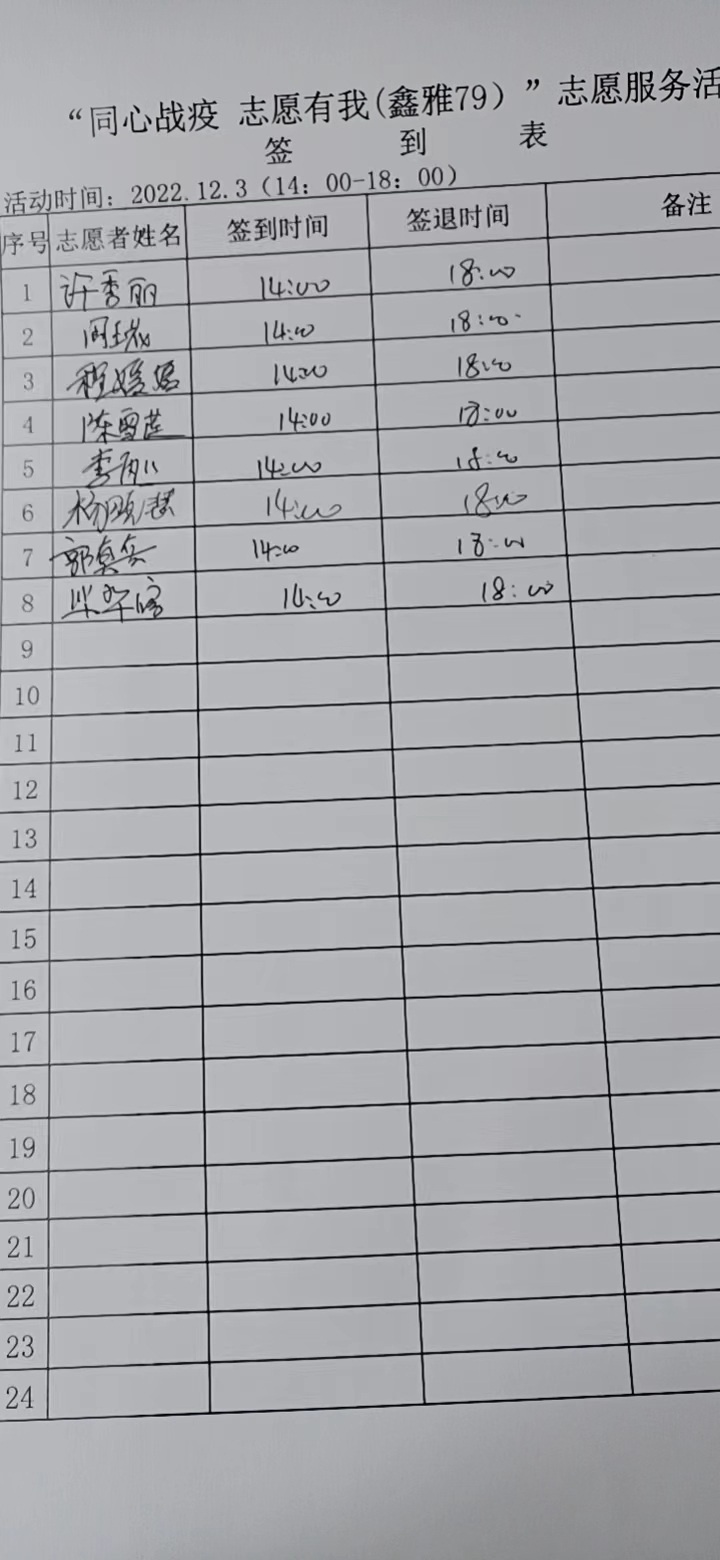 “同心战疫 志愿有我(鑫雅79）”志愿服务活
签 到 表
活动时间：2022.12.3（14：00-18：00）
序号 志愿者姓名 签到时间 签退时间 备注
1 许秀丽 14:00 18:00
2 14:00 18:00
3 程媛媛 14:00 18:00
4 陈雪莲 14:00 18:00
5 李 14:00 18:00
6 杨 14:00 18:00
7 郭 14:00 18:00
8 14:00 18:00
9
10
11
12
13
14
15
16
17
18
19
20
21
22
23
24